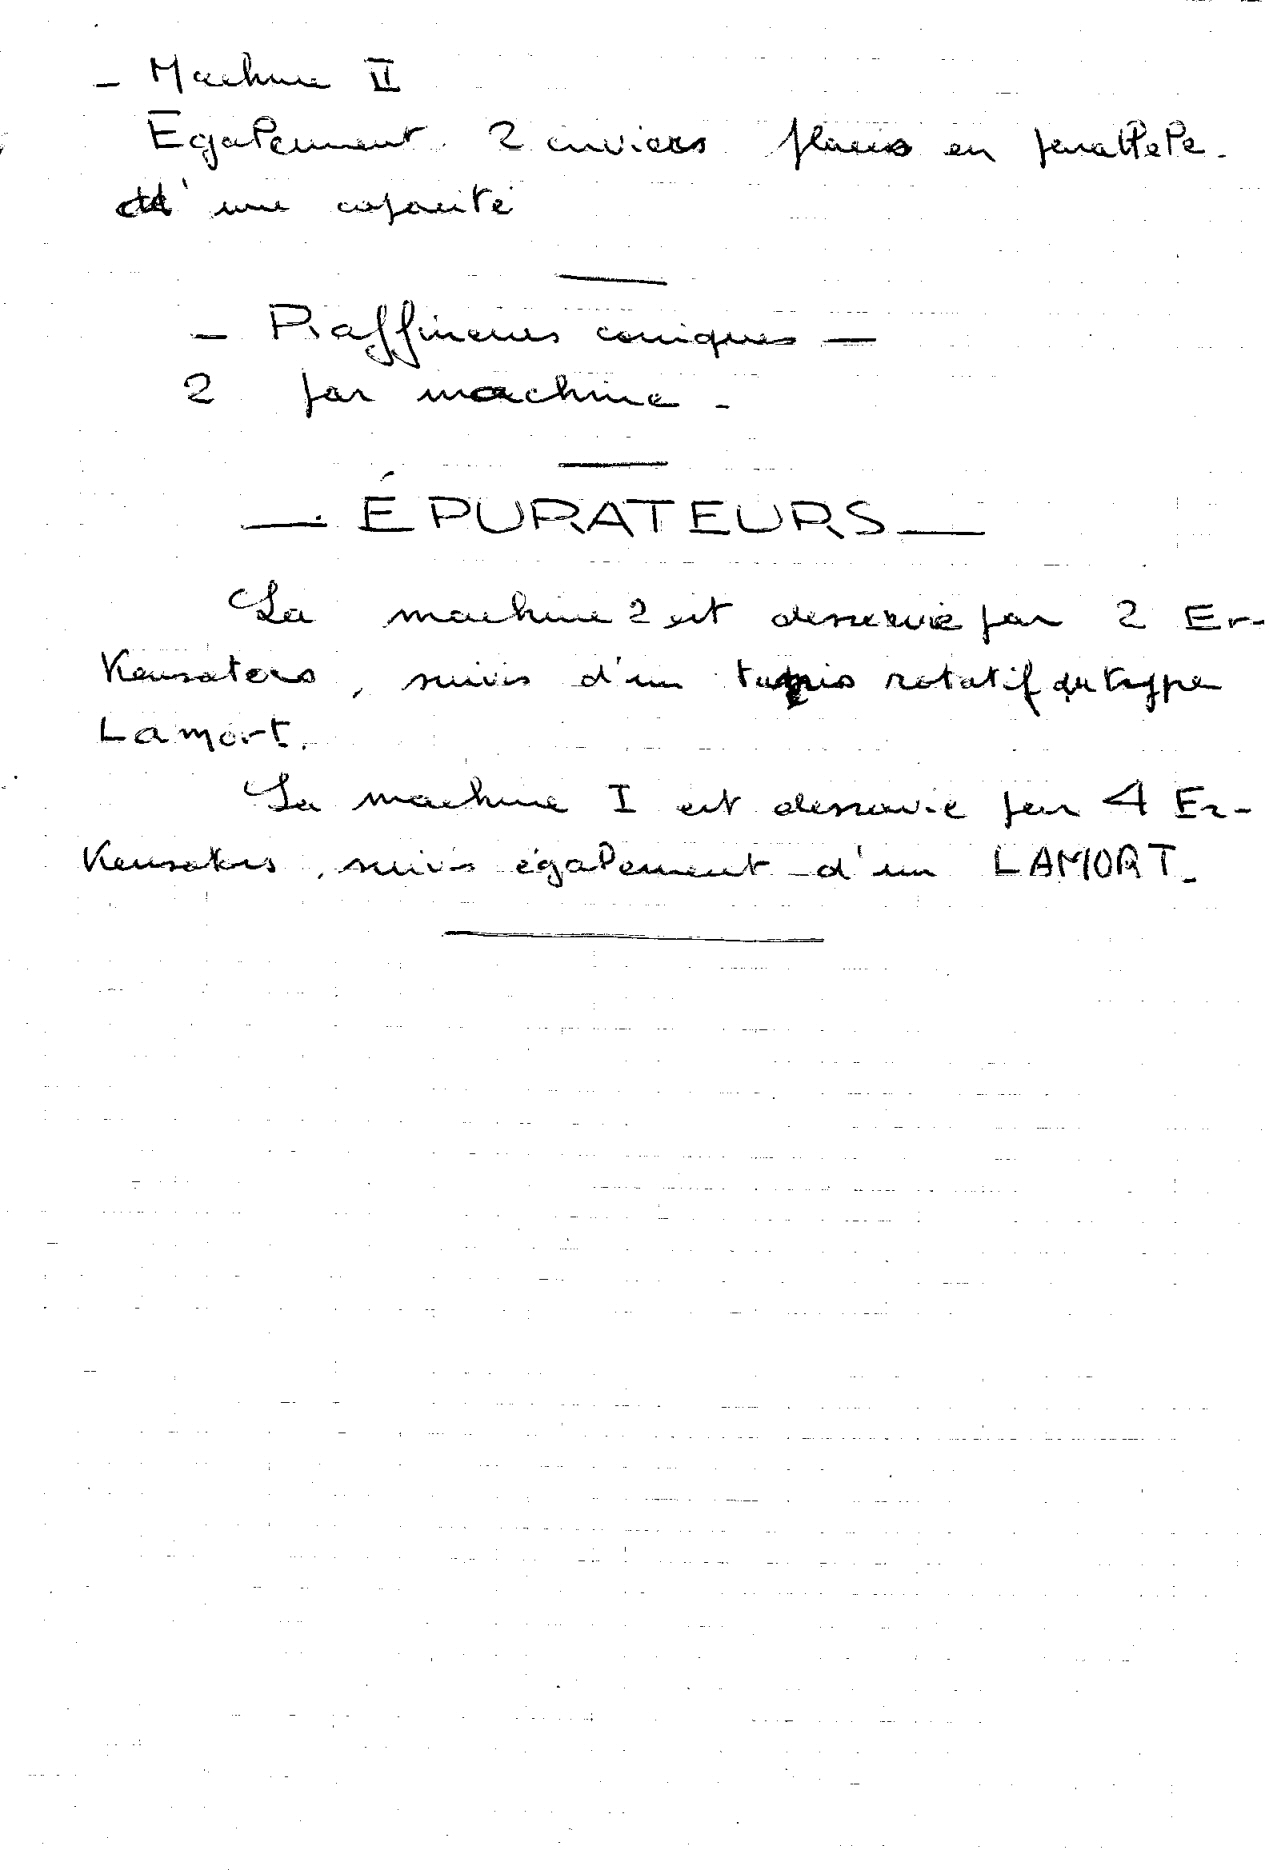 - Machine II
Egalement 2 cuviers placés en parallèle.
d'une capacité
- Raffineurs coniques -
2 par machine -
- ÉPURATEURS -
La machine 2 est desservie par 2 Er-
Kensators, suivis d'un tapis rotatif du type
Lamort.
La machine I est desservie par 4 Er-
Kensators, suivis également d'un LAMORT.